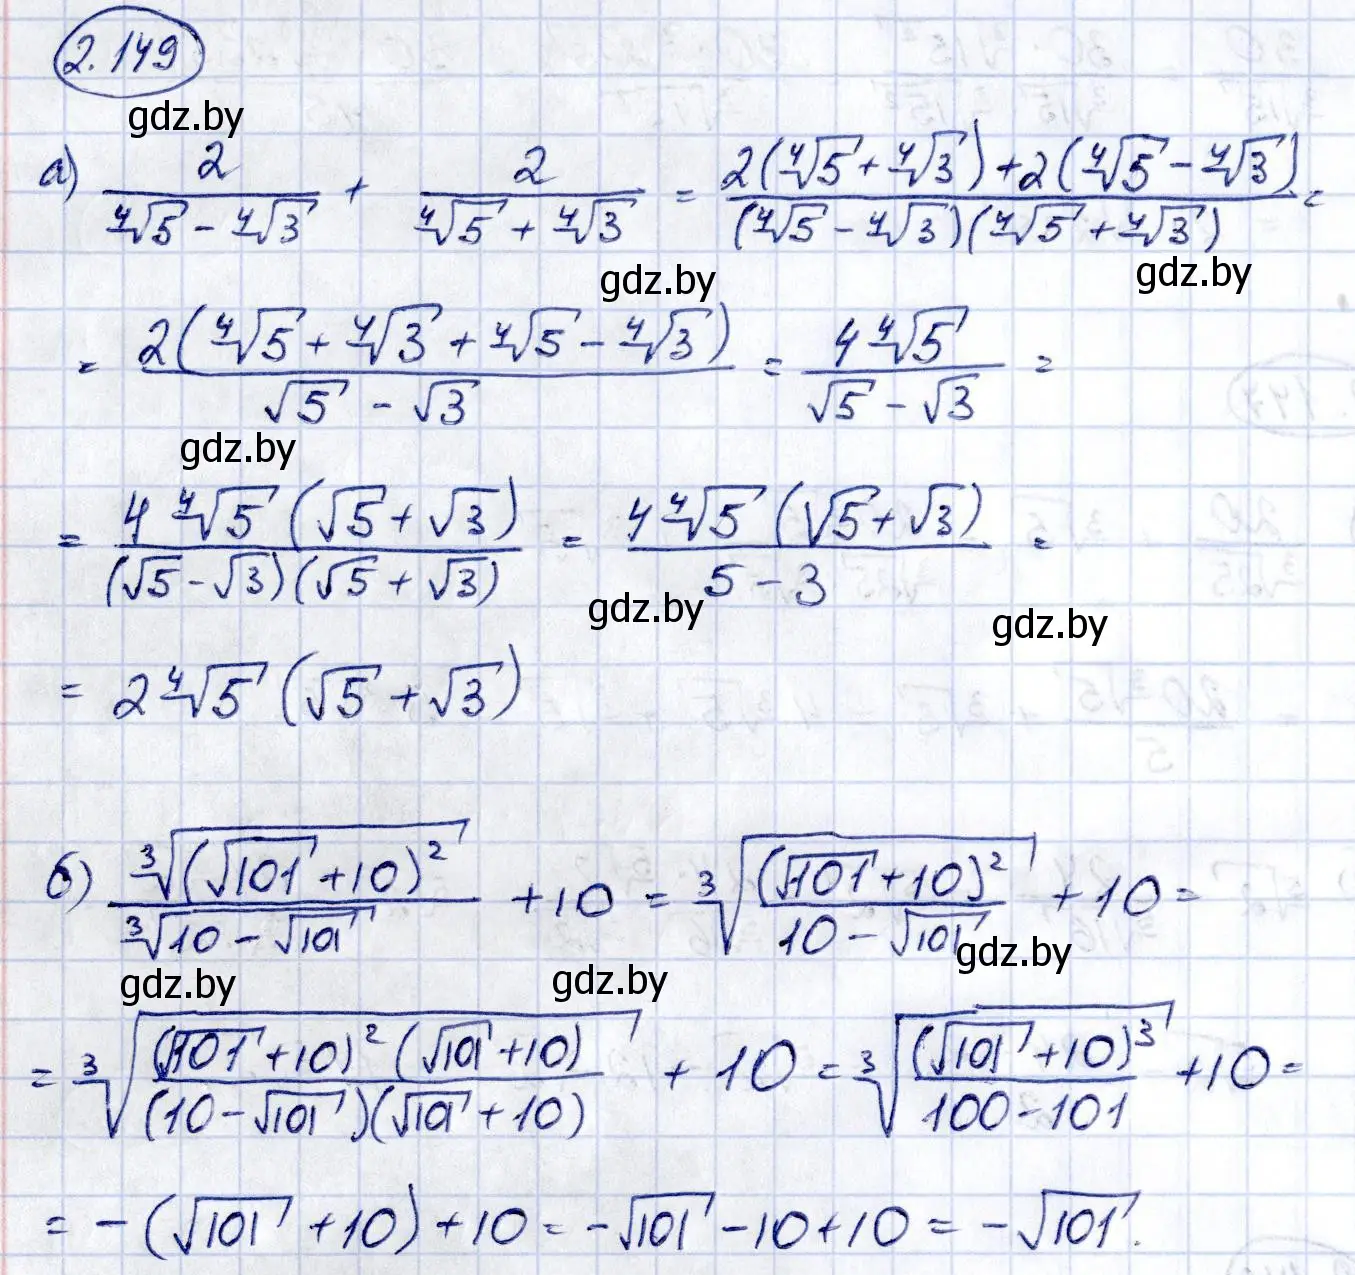 2.149
gdz.by
а) 2/(⁴√5 - ⁴√3) + 2/(⁴√5 + ⁴√3) = (2(⁴√5 + ⁴√3) + 2(⁴√5 - ⁴√3))/((⁴√5 - ⁴√3)(⁴√5 + ⁴√3)) =
gdz.by gdz.by
= 2(⁴√5 + ⁴√3 + ⁴√5 - ⁴√3)/(√5 - √3) = 4⁴√5/(√5 - √3) =
gdz.by
= 4⁴√5(√5 + √3)/((√5 - √3)(√5 + √3)) = 4⁴√5(√5 + √3)/(5 - 3) =
gdz.by gdz.by
= 2⁴√5(√5 + √3)
б) ³√((√101 + 10)²)/³√(10 - √101) + 10 = ³√((√101 + 10)²/(10 - √101)) + 10 =
gdz.by gdz.by gdz.by
= ³√((√101 + 10)²(√101 + 10)/((10 - √101)(√101 + 10))) + 10 = ³√((√101 + 10)³/(100 - 101)) + 10 =
gdz.by gdz.by
= -(√101 + 10) + 10 = -√101 - 10 + 10 = -√101.